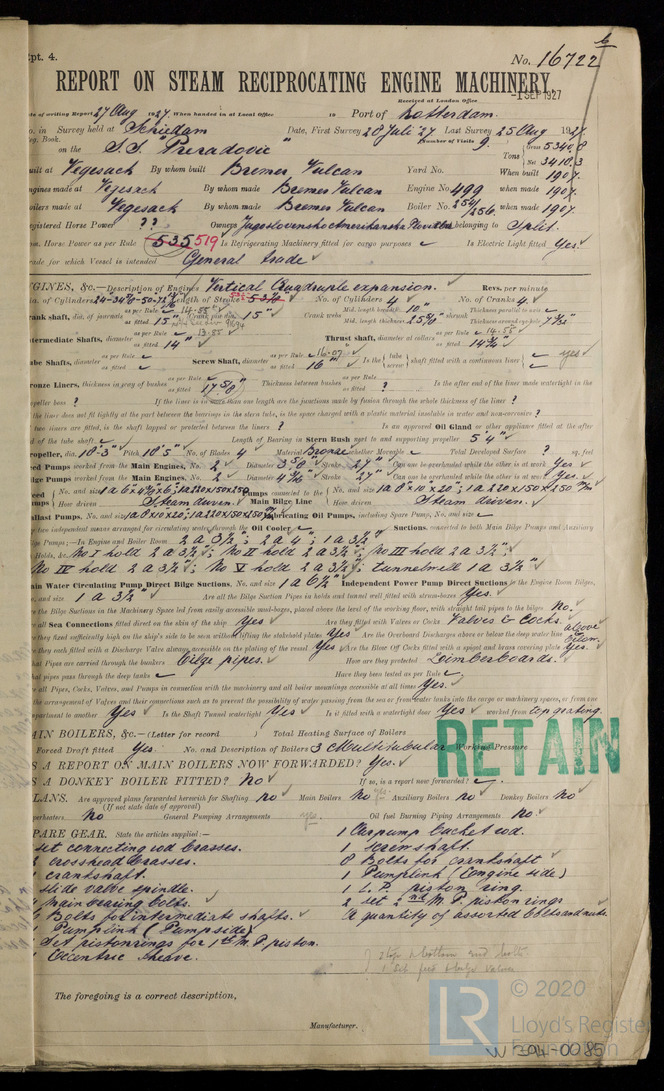 pt. 4.
No. 16722
REPORT ON STEAM RECIPROCATING ENGINE MACHINERY.
Received at London Office
-1 SEP 1927
of writing Report 27 Aug 1927. When handed in at Local Office Port of Rotterdam.
in Survey held at Schiedam Date, First Survey 20 Juli '27 Last Survey 25 Aug 1927
Book. Number of Visits 9.
on the S.S. "Preradovic" Tons Gross 5340.8
Net 3410.3
uilt at Vegesack By whom built Bremer Vulcan Yard No. When built 1907.
ngines made at Vegesack By whom made Bremer Vulcan Engine No. 499 when made 1907.
oilers made at Vegesack By whom made Bremer Vulcan Boiler No. 254/256. when made 1907
egistered Horse Power ?? Owners Jugoslovensko Amerikanska Plovidba belonging to Split.
m. Horse Power as per Rule 535 519 Is Refrigerating Machinery fitted for cargo purposes Is Electric Light fitted Yes.
rade for which Vessel is intended General trade
NGINES, &c.—Description of Engines Vertical Quadruple expansion. Revs. per minute
of Cylinders 24-34 Length of Stroke No. of Cylinders 4 No. of Cranks 4.
rank shaft, dia. of journals as per Rule 14.55 as fitted 15" Crank pin dia. 15" Crank webs Mid. length breadth 10" Mid. length thickness Thickness parallel to axis Thickness around eye-hole
ntermediate Shafts, diameter as per Rule 13.85 as fitted 14" Thrust shaft, diameter at collars as per Rule 14.55 as fitted
ube Shafts, diameter as per Rule as fitted Screw Shaft, diameter as per Rule as fitted 16" Is the tube screw shaft fitted with a continuous liner yes
ronze Liners, thickness in way of bushes as per Rule as fitted Thickness between bushes as per Rule as fitted ? Is the after end of the liner made watertight in the
peller boss ? If the liner is in more than one length are the junctions made by fusion through the whole thickness of the liner ?
the liner does not fit tightly at the part between the bearings in the stern tube, is the space charged with a plastic material insoluble in water and non-corrosive ?
two liners are fitted, is the shaft lapped or protected between the liners ? Is an approved Oil Gland or other appliance fitted at the after
d of the tube shaft Length of Bearing in Stern Bush next to and supporting propeller 5'4"
ropeller, dia. Pitch No. of Blades 4 Material Bronze whether Moveable Total Developed Surface ? sq. feet
ed Pumps worked from the Main Engines, No. 2 Diameter Stroke 27" Can one be overhauled while the other is at work Yes.
lge Pumps worked from the Main Engines, No. 2 Diameter Stroke 27" Can one be overhauled while the other is at work Yes.
eed Pumps No. and size How driven Steam driven. Pumps connected to the Main Bilge Line No. and size How driven Steam driven.
allast Pumps, No. and size Lubricating Oil Pumps, including Spare Pump, No. and size
two independent means arranged for circulating water through the Oil Cooler Suctions, connected to both Main Bilge Pumps and Auxiliary
ge Pumps;—In Engine and Boiler Room 2 a 3½"; 2 a 4"; 1 a 3½"
Holds, &c. No I hold 2 a 3½"; No II hold 2 a 3½"; No III hold 2 a 3½";
No IV hold 2 a 3½"; No V hold 2 a 3½"; tunnelwell 1 a 3½"
ain Water Circulating Pump Direct Bilge Suctions, No. and size 1 a 6½" Independent Power Pump Direct Suctions to the Engine Room Bilges,
o. and size 1 a 3½" Are all the Bilge Suction Pipes in holds and tunnel well fitted with strum-boxes Yes.
re the Bilge Suctions in the Machinery Space led from easily accessible mud-boxes, placed above the level of the working floor, with straight tail pipes to the bilges No.
e all Sea Connections fitted direct on the skin of the ship Yes Are they fitted with Valves or Cocks Valves & Cocks.
e they fixed sufficiently high on the ship's side to be seen without lifting the stokehold plates Yes Are the Overboard Discharges above or below the deep water line above
e they each fitted with a Discharge Valve always accessible on the plating of the vessel Yes Are the Blow Off Cocks fitted with a spigot and brass covering plate Yes.
hat Pipes are carried through the bunkers Bilge pipes. How are they protected Timberboards.
hat pipes pass through the deep tanks Have they been tested as per Rule
e all Pipes, Cocks, Valves, and Pumps in connection with the machinery and all boiler mountings accessible at all times Yes.
the arrangement of Valves and their connections such as to prevent the possibility of water passing from the sea or from water tanks into the cargo or machinery spaces, or from one
partment to another Yes Is the Shaft Tunnel watertight Yes Is it fitted with a watertight door Yes worked from top grating.
AIN BOILERS, &c.—(Letter for record ) Total Heating Surface of Boilers
Forced Draft fitted Yes. No. and Description of Boilers 3 Multitubular Working Pressure
RETAIN
S A REPORT ON MAIN BOILERS NOW FORWARDED? Yes.
S A DONKEY BOILER FITTED? No If so, is a report now forwarded?
LANS. Are approved plans forwarded herewith for Shafting No Main Boilers No Auxiliary Boilers No Donkey Boilers No
(If not state date of approval)
perheaters No General Pumping Arrangements yes. Oil fuel Burning Piping Arrangements No.
PARE GEAR. State the articles supplied:— 1 Airpump bucket rod.
set connecting rod brasses. 1 Screwshaft.
2 crosshead brasses. 8 Bolts for crankshaft
crankshaft. 1 Pumplink (Engine side)
slide valve spindle. 1 L.P. piston ring.
main bearing bolts. 2 set 2nd M.P. piston rings
Bolts for intermediate shafts. A quantity of assorted bolts and nuts.
Pumplink (Pumpside)
Set pistonrings for 1st M.P. piston.
Eccentric sheave.
The foregoing is a correct description,
Manufacturer.
LR
© 2020
Lloyd's Register
Foundation
W 294-0085